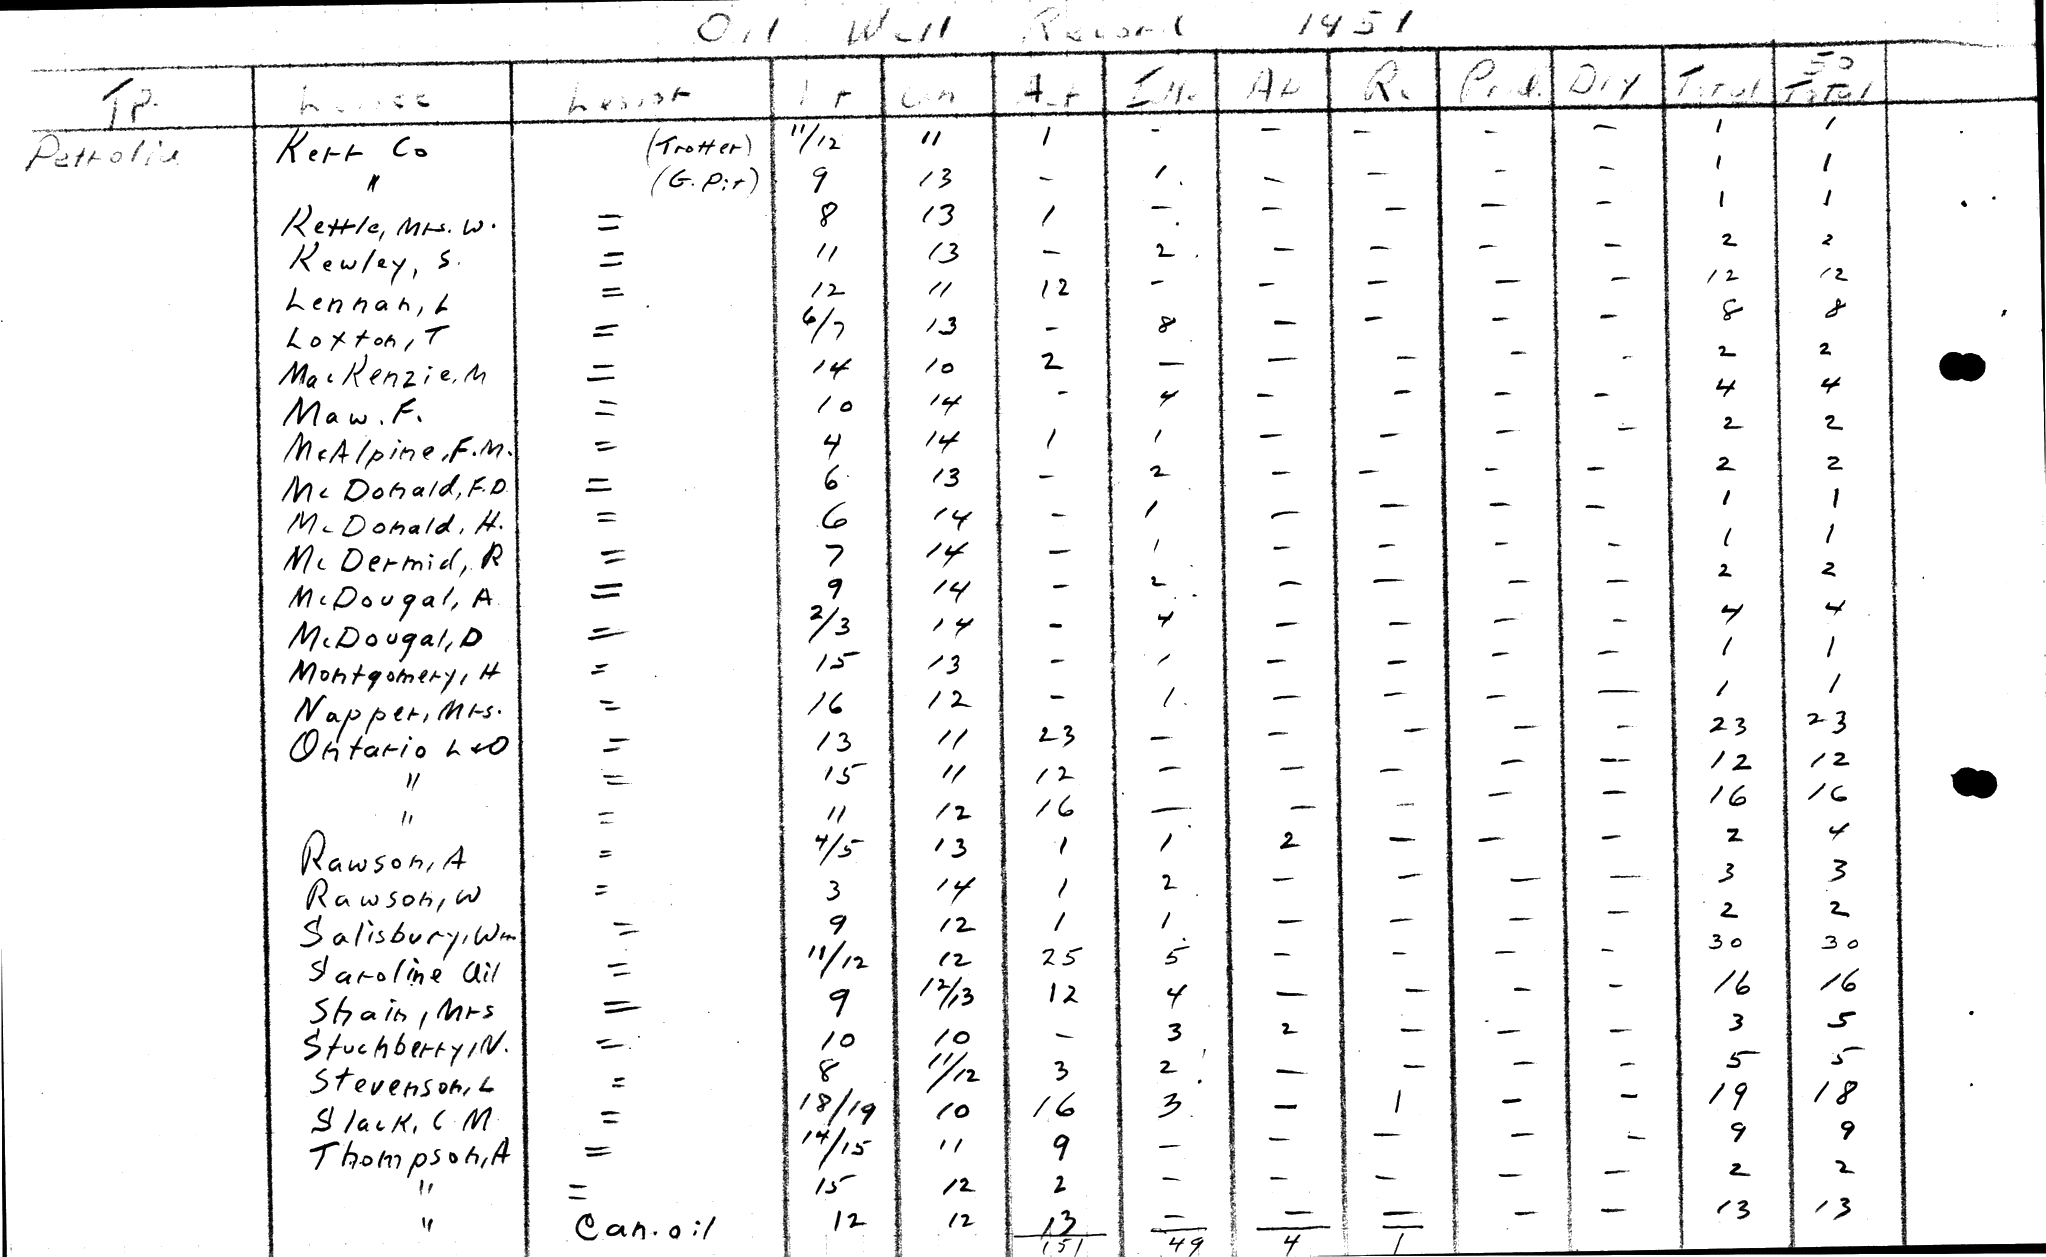 Oil Well Record 1951
TP. Lessee Lessor Lot Con Act Idle Ab Re Prod. Dry Total 50 Total
Petrolia Kerr Co (Trotter) 11/12 11 1 - - - - - 1 1
" (G. Pit) 9 13 - 1 - - - - 1 1
Kettle, Mrs. W. = 8 13 1 - - - - - 1 1
Kewley, S. = 11 13 - 2 - - - - 2 2
Lennan, L = 12 11 12 - - - - - 12 12
Loxton, T = 6/7 13 - 8 - - - - 8 8
MacKenzie, M = 14 10 2 - - - - - 2 2
Maw. F. = 10 14 - 4 - - - - 4 4
McAlpine, F.M. = 4 14 1 1 - - - - 2 2
McDonald, F.D. = 6 13 - 2 - - - - 2 2
McDonald, H. = 6 14 - 1 - - - - 1 1
McDermid, R = 7 14 - 1 - - - - 1 1
McDougal, A = 9 14 - 2 - - - - 2 2
McDougal, D = 2/3 14 - 4 - - - - 4 4
Montgomery, H = 15 13 - 1 - - - - 1 1
Napper, Mrs. = 16 12 - 1 - - - - 1 1
Ontario L&O = 13 11 23 - - - - - 23 23
" = 15 11 12 - - - - - 12 12
" = 11 12 16 - - - - - 16 16
Rawson, A = 4/5 13 1 1 2 - - - 2 4
Rawson, W = 3 14 1 2 - - - - 3 3
Salisbury, Wm = 9 12 1 1 - - - - 2 2
Saroline Oil = 11/12 12 25 5 - - - - 30 30
Shain, Mrs = 9 12/13 12 4 - - - - 16 16
Stuchberry, N. = 10 10 - 3 2 - - - 3 5
Stevenson, L = 8 11/12 3 2 - - - - 5 5
Slack, C M = 18/19 10 16 3 - 1 - - 19 18
Thompson, A = 14/15 11 9 - - - - - 9 9
" = 15 12 2 - - - - - 2 2
" Can. oil 12 12 13 - - - - - 13 13
151 49 4 1